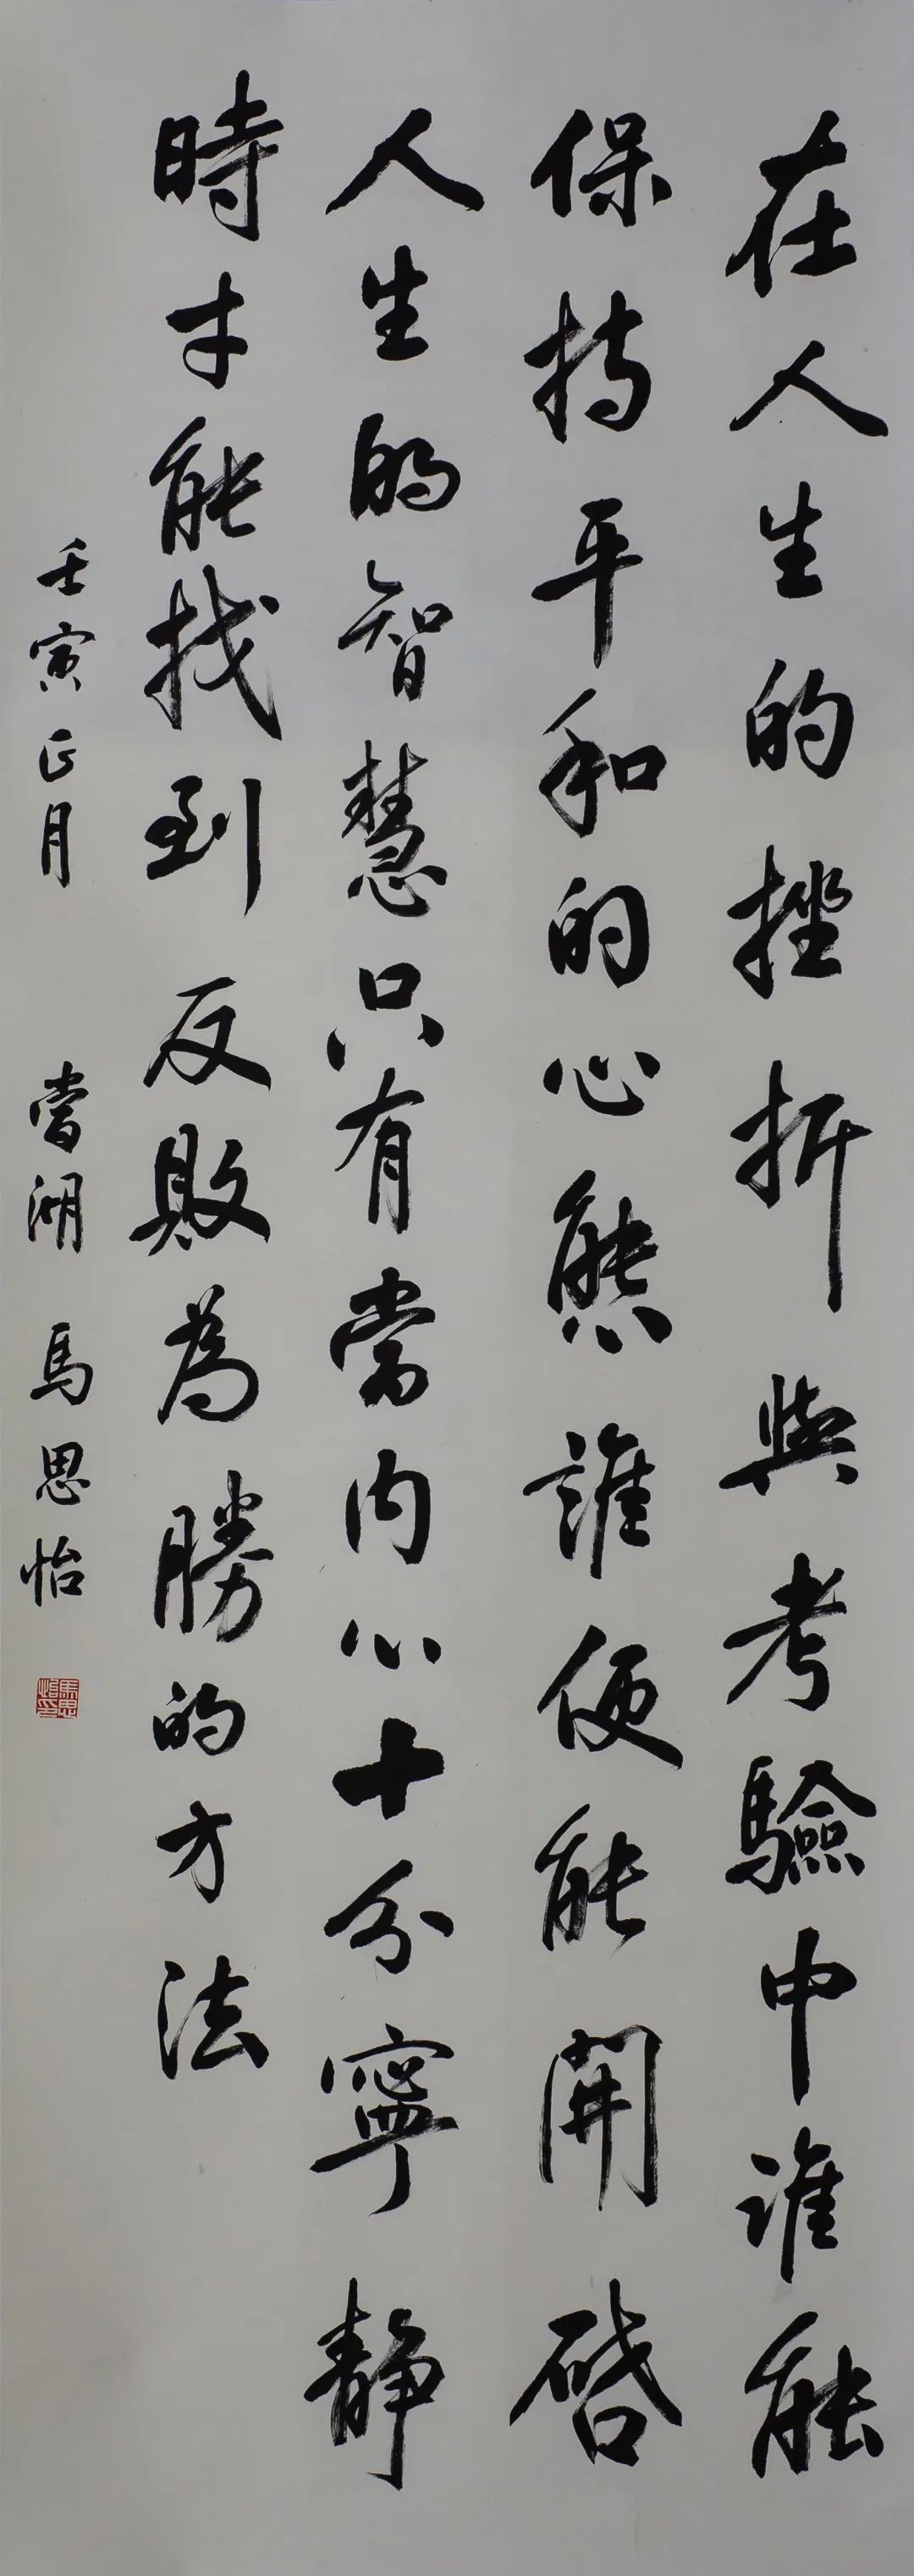 在人生的挫折與考驗中誰能
保持平和的心態誰便能開啓
人生的智慧只有當内心十分寧靜
時才能找到反敗為勝的方法
壬寅正月 當湖 馬思怡
馬思怡印